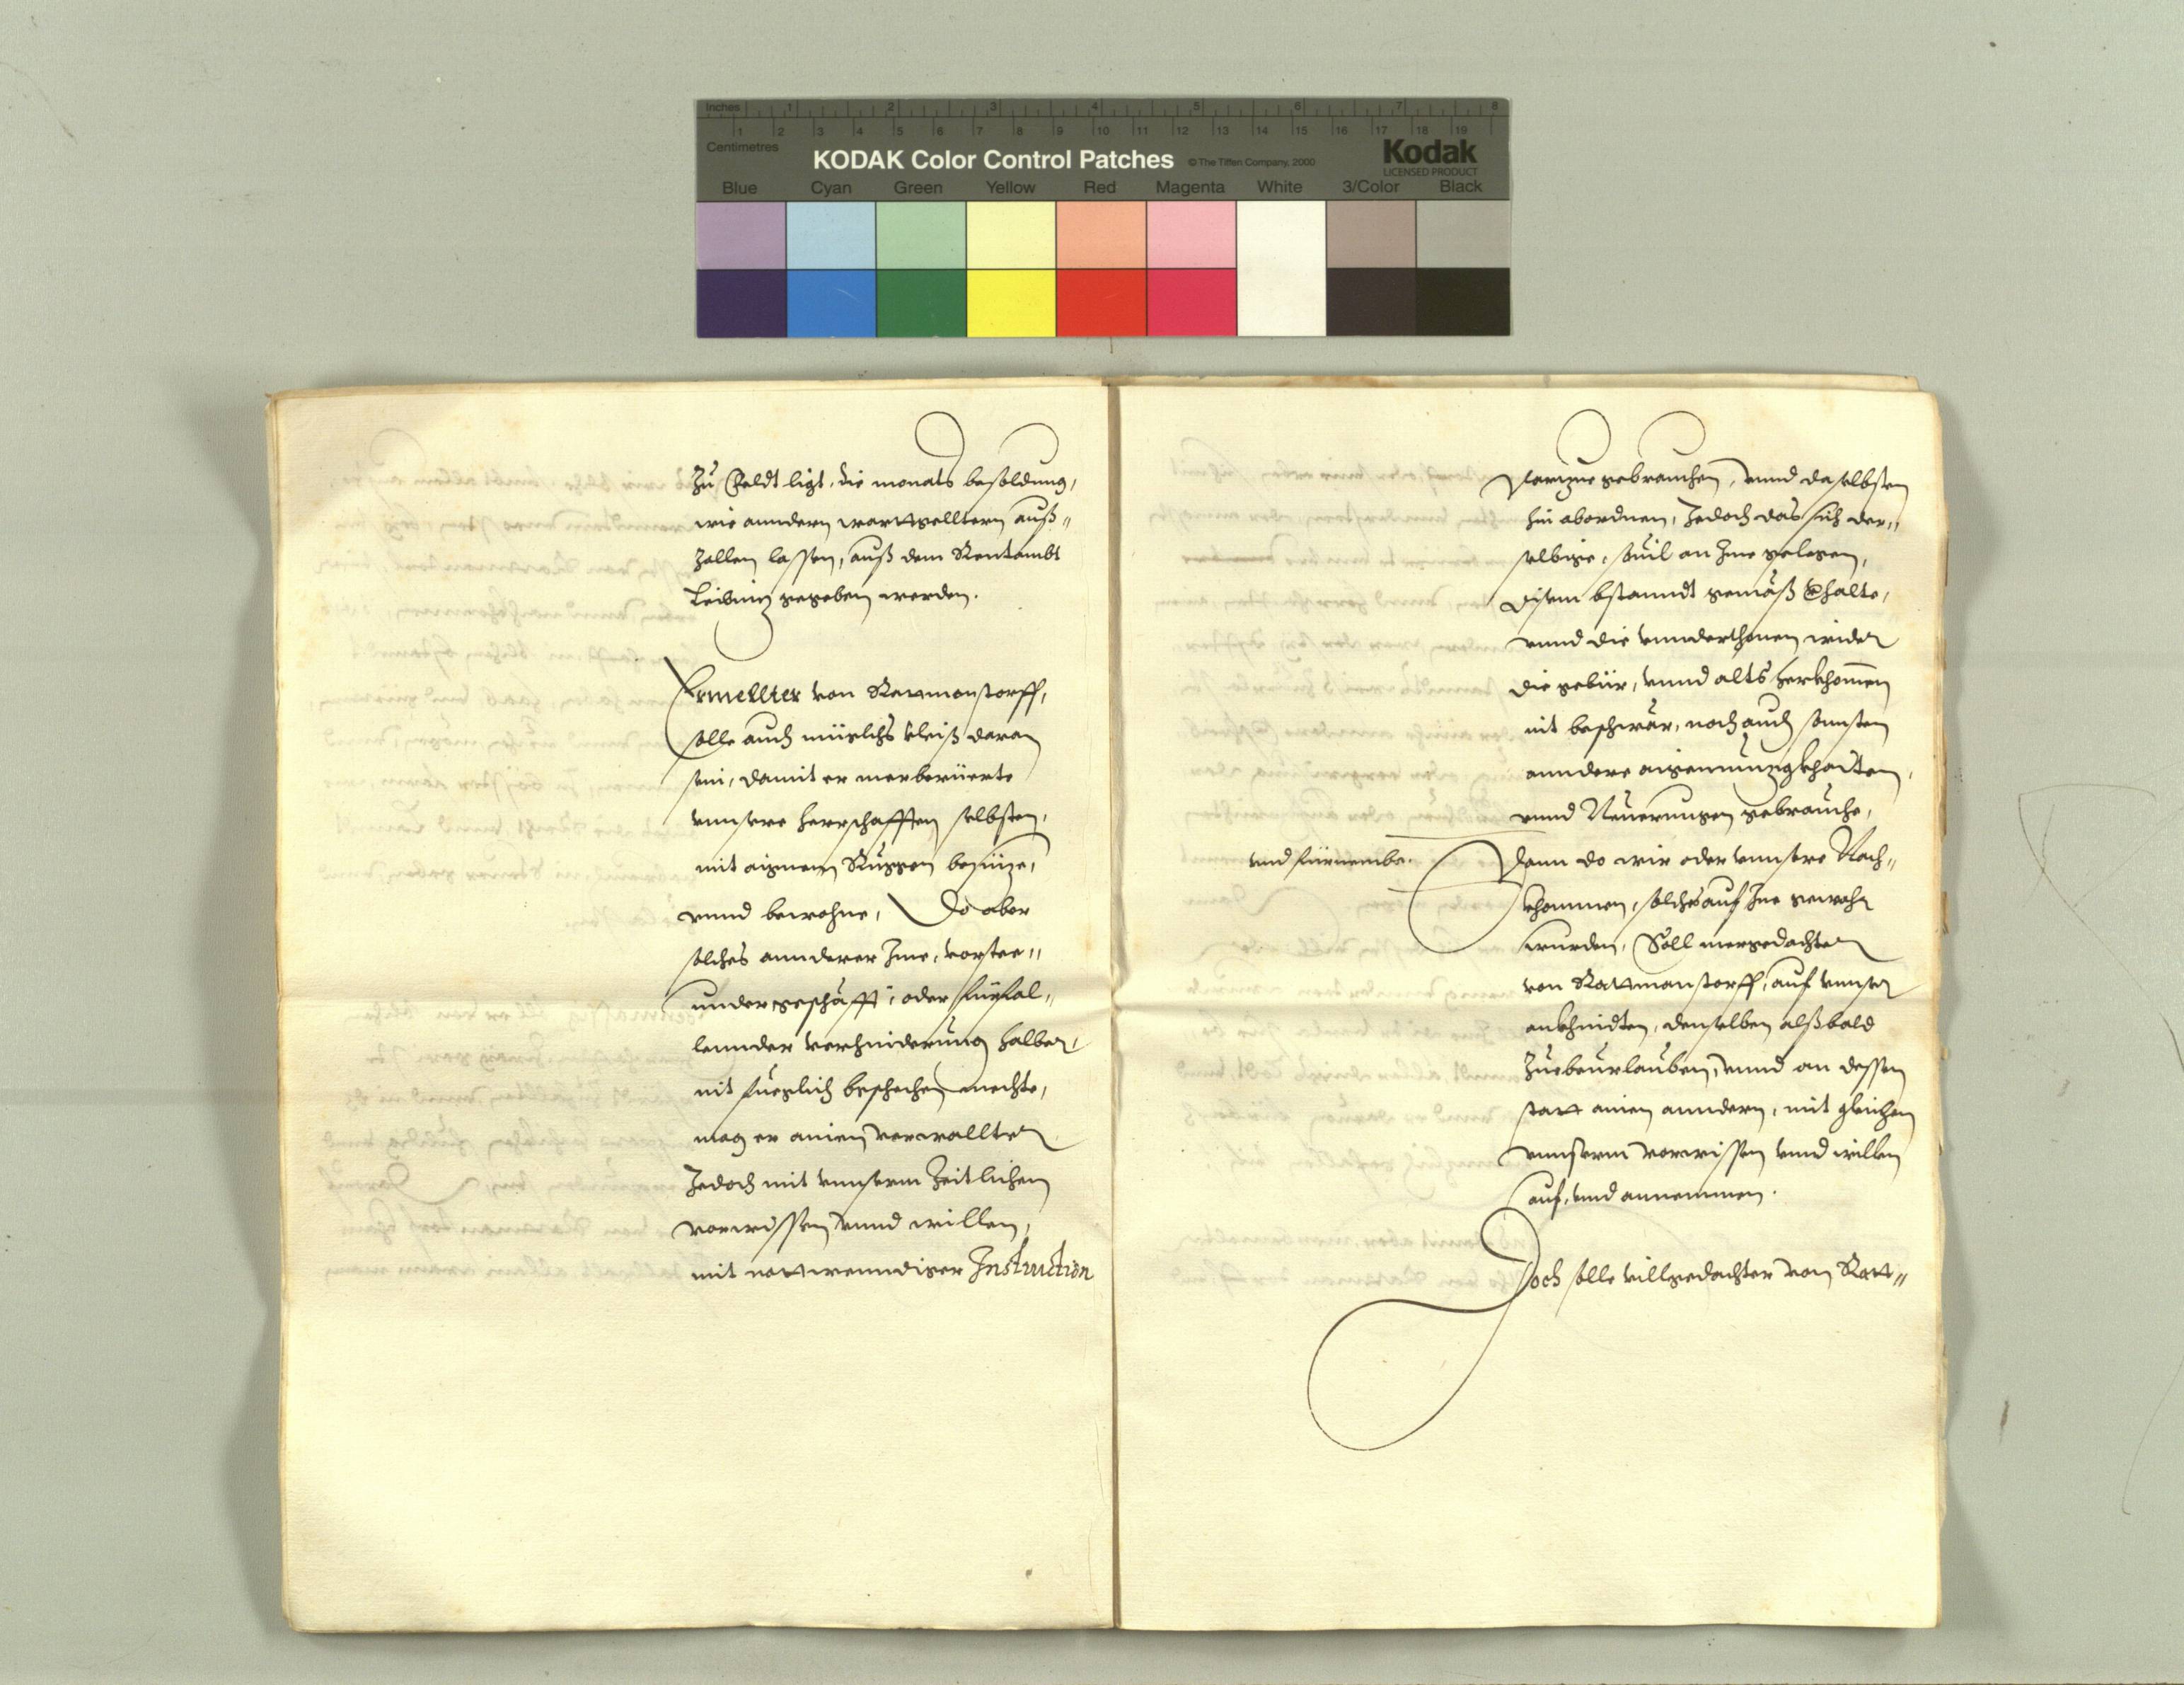 Inches 1 2 3 4 5 6 7 8
Centimetres 1 2 3 4 5 6 7 8 9 10 11 12 13 14 15 16 17 18 19
KODAK Color Control Patches © The Tiffen Company, 2000 Kodak
LICENSED PRODUCT
Blue Cyan Green Yellow Red Magenta White 3/Color Black
Zu Veldt ligt, die monats besoldung,
wie anndern wartgelltern auß„
zallen lassen, auß dem Rentambt
gegeben werden.
Ermellter von Rattmanstorff,
solle auch müglichs vleiß daran
sein, damit er merberüerte
unnsere herrschafften selbsten,
mit aignem Ruggen besüize,
unnd bewohne, Do aber
solches annderer Ime,
undergeschäfft, oder fürfal„
lennder verhinderung halber,
nit füeglich beschechen mechte,
mag er ainen verwallter
Jedoch mit unnserm Zeitlichen
vorwissen unnd willen,
mit nottwenndiger Instruction
darzue gebrauchen, unnd daselbsten
hin abordnen, Jedoch das sich der„
selbige, souil an Ime gelegen,
disem bstanndt gemäß verhalte,
unnd die unnderthonen wider
die gebür, unnd alts herkhomen
nit beschwär, noch auch sonnsten
anndere aigennuzigkhaiten,
unnd Neuerungen gebrauche,
und fürnembe.
Dann do wir oder unnsere Nach„
khommen, solches auf Ine gewahr
wurden, Soll mergedachter
von Rattmanstorff, auf unnser
ankhinden, denselben alßbald
Zuebeurlauben, unnd an dessen
statt ainen anndern, mit gleichem
unnserm vorwissen unnd willen
auf, und annemmen.
Doch solle villgedachter von Ratt„